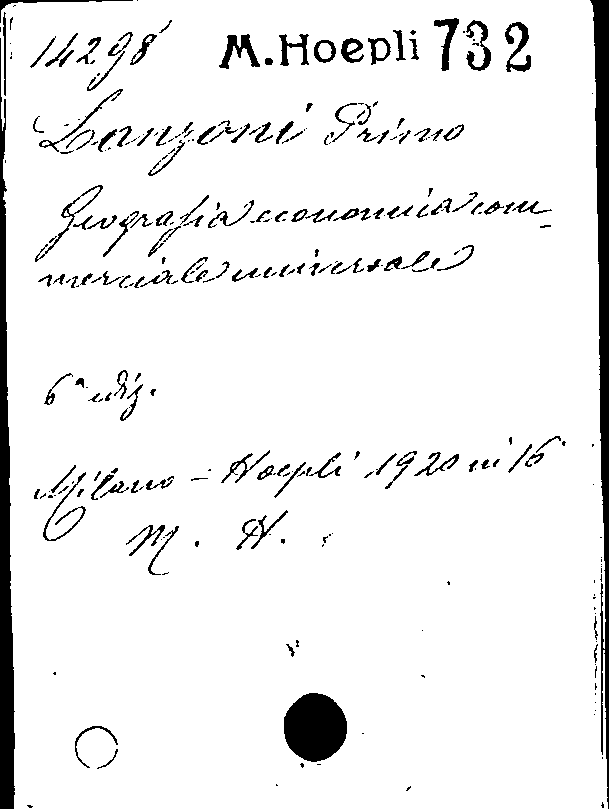 14298 M. Hoepli 732
Lanzoni Primo
Geografia economica com-
merciale universale
6ª ediz.
Milano - Hoepli 1920 in 16°
M. H.